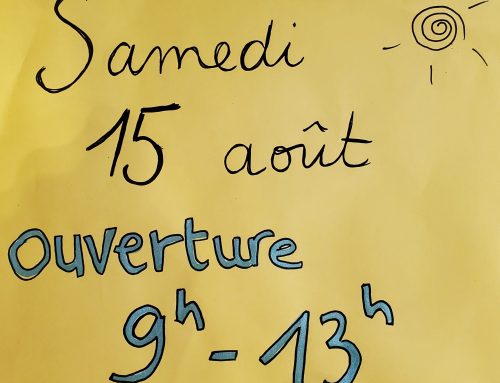 Samedi
15 août
ouverture
9h - 13h